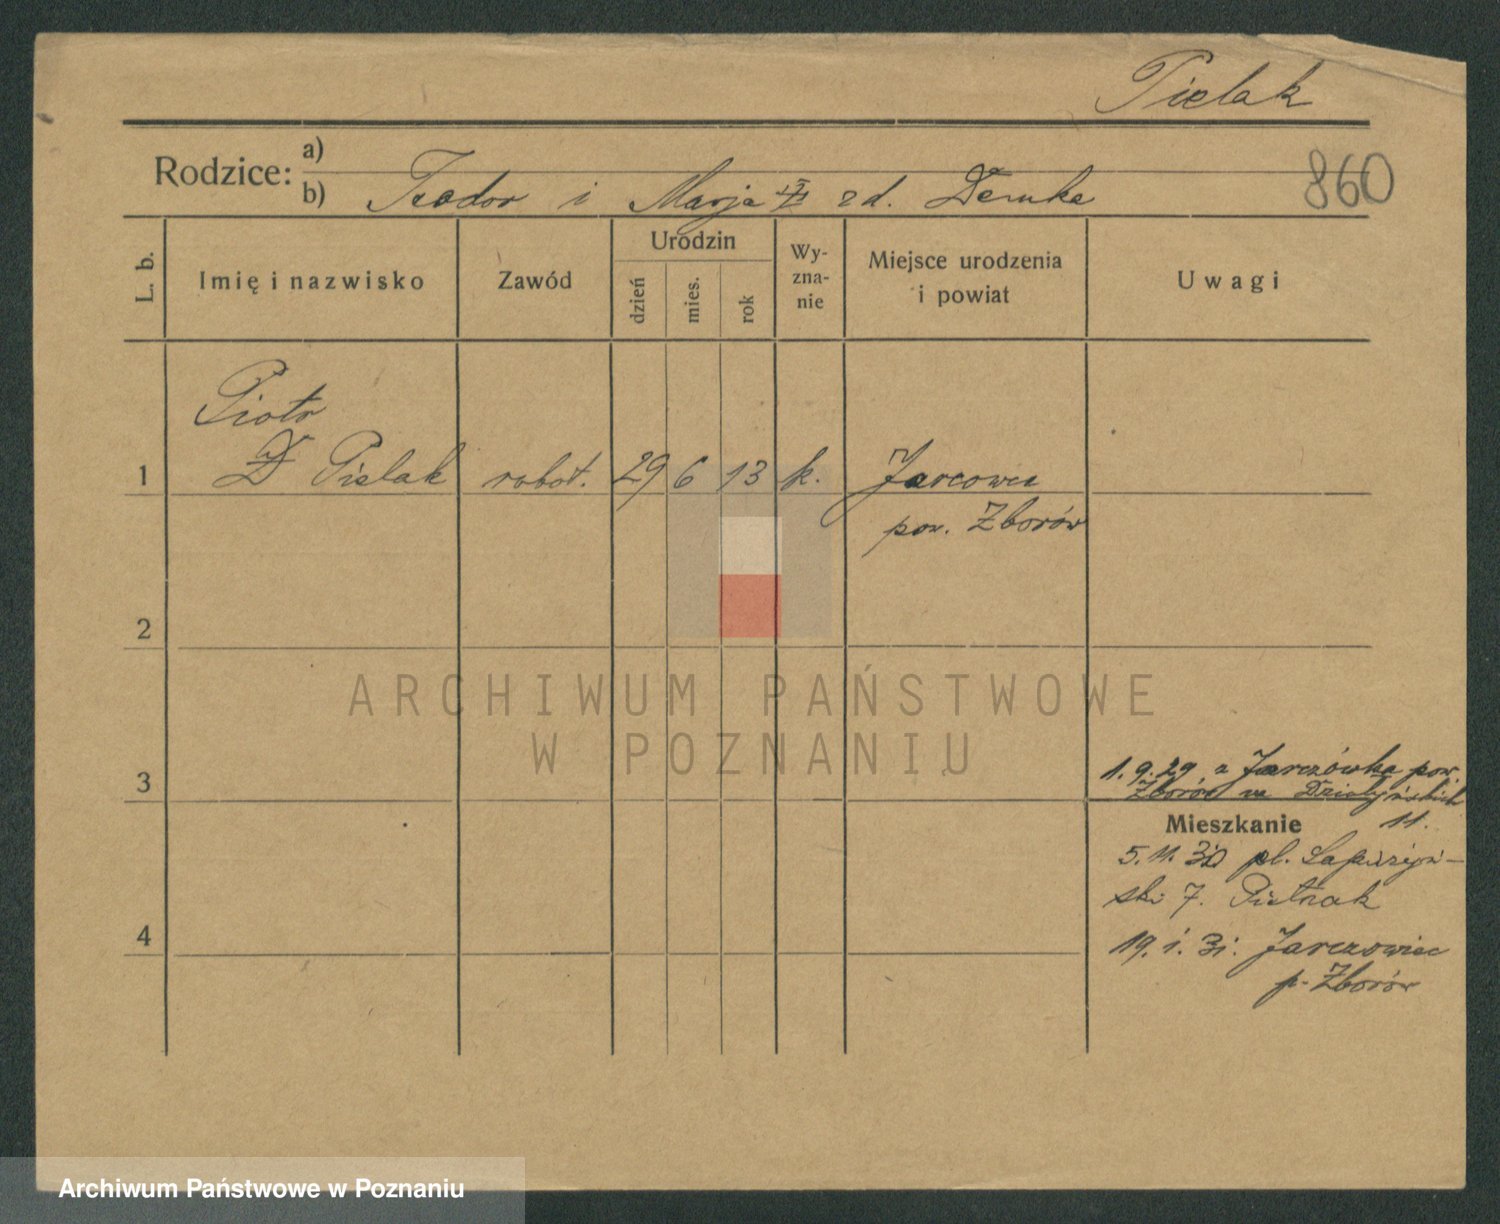 Pielak
Rodzice: a)
b) Teodor i Marja zd. Demka
860
L. b.
Imię i nazwisko
Zawód
Urodzin
dzień
mies.
rok
Wy-
zna-
nie
Miejsce urodzenia
i powiat
Uwagi
Piotr
1 Pielak robot. 29 6 13 k. Jarcowce
pow. Zborów
2
ARCHIWUM PAŃSTWOWE
W POZNANIU
3
1.9.29 z Jarczówka pow.
Zborów na Działyńskich
11.
Mieszkanie
5.11.30 pl. Sapieżyń-
ski 7. Pietrzak
4
19.1.31. Jarczowiec
p. Zborów
Archiwum Państwowe w Poznaniu